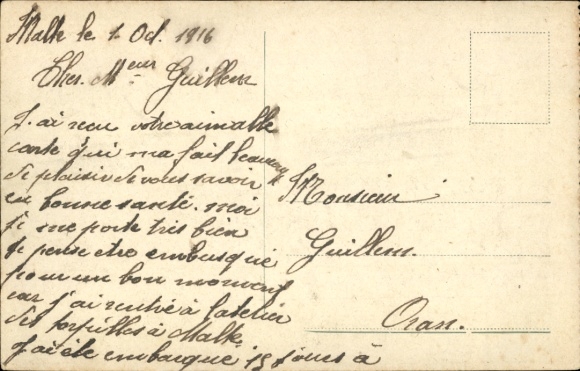 Malte le 1. Oct. 1916
Cher. Meur Guillem
J'ai recu votre aimable
carte qui ma fait beaucoup
de plaisir de vous savoir
en bonne santé. moi
je me porte tris bien
je pense etre embusqué
pour un bon moment
car j'ai rentré à l'atelier
des torpilles à Malte.
J'ai été embarqué 15 jours à
Monsieur
Guillem.
Oran.